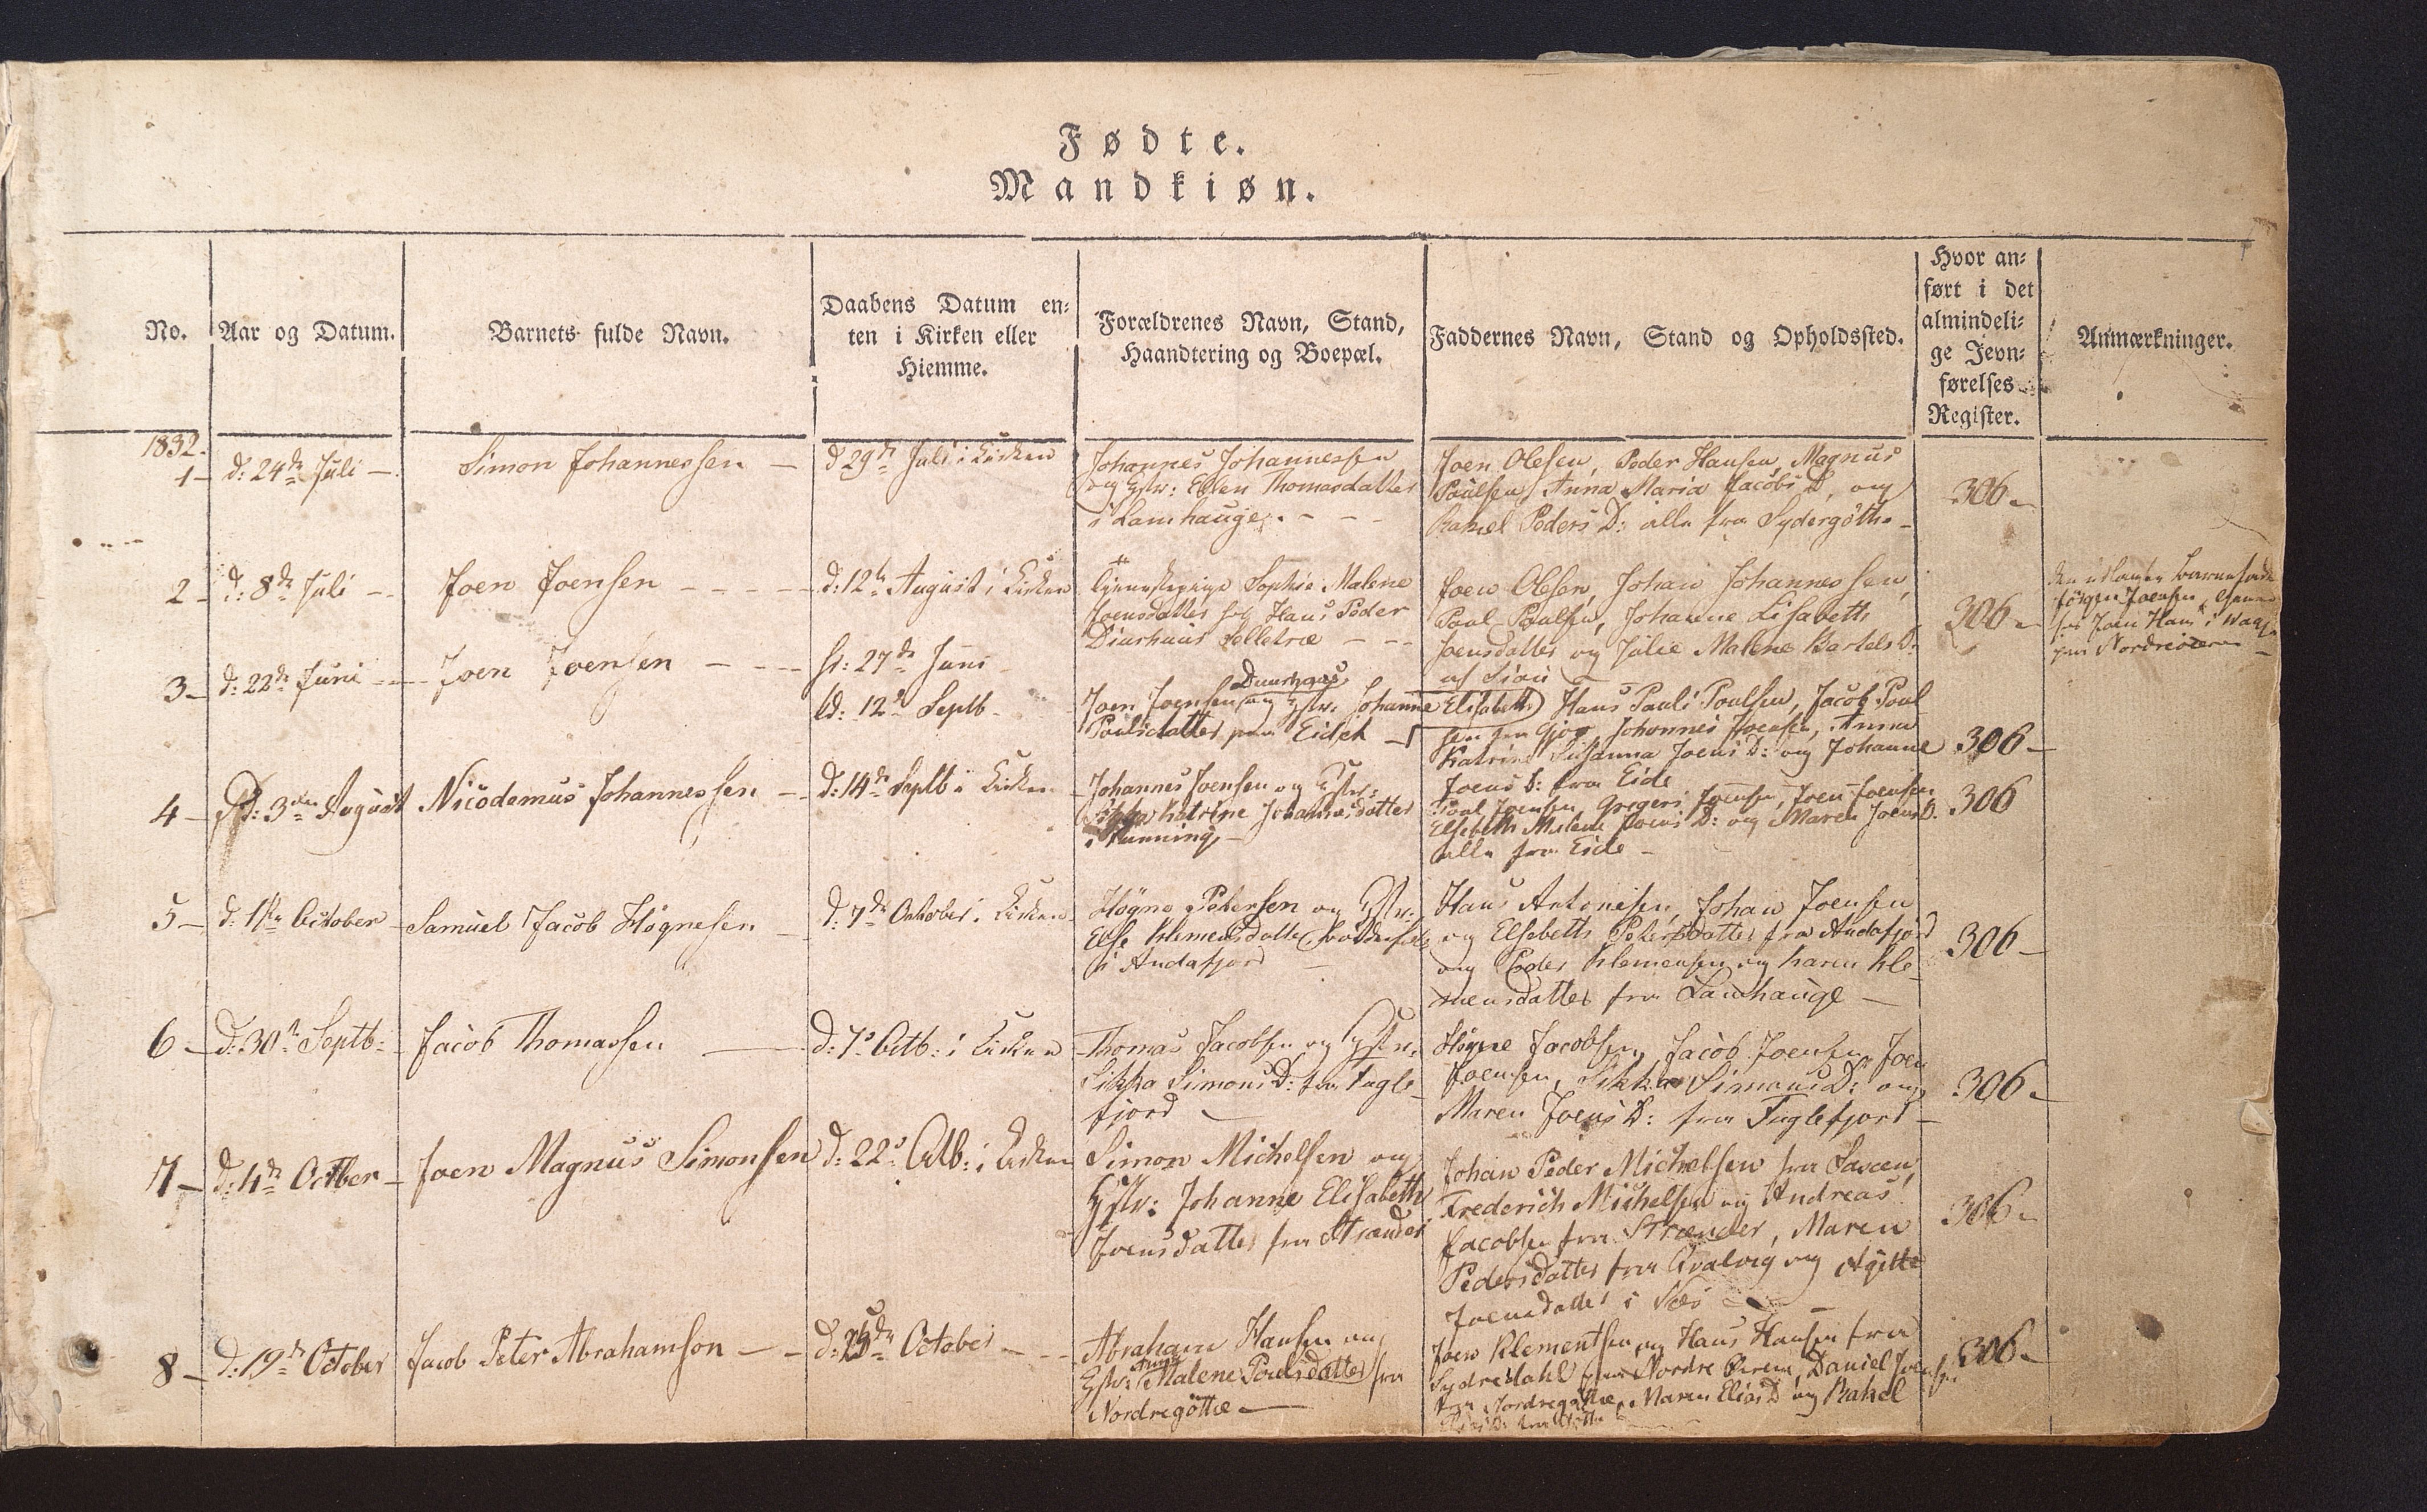 Fødte.
Mandkiøn.
No.
Aar og Datum.
Barnets fulde Navn.
Daabens Datum en=
ten i Kirken eller
Hiemme.
Forældrenes Navn, Stand,
Haandtering og Boepæl.
Faddernes Navn, Stand og Opholdssted.
Hvor an=
ført i det
almindeli=
ge Jevn=
førelses
Register.
Anmærkninger.
1832.
1 –
d: 24de Juli –
Simon Johannessen –
d 29de Juli i Kirken
Johannes Johannessen
og Hstr: Ellen Thomasdatter
i Lamhauge. – – –
Joen Olesen, Peder Hansen, Magnus
Poulsen, Anna Maria Jacobs D, og
Rakel Peders D: alle fra Sydergøthe –
306 –
2 –
d: 8de Juli –
Joen Joensen – – – –
d: 12te August i Kirken
Sophie Malene
Joensdatter hos Hans Peder
Diurhuus Selletræ – – –
Joen Olesen, Johan Johannessen,
Poul Poulsen, Johanne Lisabeth
Joensdatter og Julie Malene Bartels D:
af Siøu
306 –
Joen Hans i
Nordreøerne –
3 –
d: 22de Juni –
Joen Joensen – – –
H: 27de Juni
d: 12te Septb –
Joen Joensen Duurhuus og Hstr: Johanne Elisabeth
Poulsdatter fra Eidet –
Hans Pauli Poulsen, Jacob Poul
sen fra Gjov Johannes Joensen, Anna
Katrine Susanna Joens D: og Johanne
Joens D: fra Eide
306 –
4 –
D: 3die August
Nicodemus Johannessen –
d: 14de Septb i Kirken
Johannes Joensen og Hstr:
Sikka Katrine Johannesdatter
i Funning –
Poul Joensen, Gregers Joensen, Joen Joensen
Elsebeth Malene Joens D: og Maren Joens D.
alle fra Eide –
306
5 –
d: 1ste October –
Samuel Jacob Høgnesen –
d: 7de October i Kirken –
Høgne Petersen og Hstr:
Else Klemensdatter
i Andafjord –
Hans Antonisen, Johan Joensen
og Elsebeth Petersdatter fra Andafjord
og Peder Klemensen og Karen Kle-
mensdatter fra Lamhauge –
306 –
6 –
D: 30te Septb:
Jacob Thomassen –
d: 7de Octb: i Kirken
Thomas Jacobsen og Hstr:
Sikka Simons D: fra Fugle-
fjord –
Høgne Jacobsen, Jacob Joensen, Joen
Joensen, Sikka Simons D: og
Maren Joens D: fra Fuglefjord –
306 –
7 –
D: 4de October –
Joen Magnus Simonsen
d: 22de Octb: i Kirken
Simon Michelsen og
Hstr: Johanne Elisabeth
Joensdatter fra Strænder
Johan Peder Michelsen fra
Frederich Michelsen og Andreas
Jacobsen fra Strænder, Maren
Pedersdatter fra Qvalvig og Agitte
Joensdatter i Næs –
306 –
8 –
d: 19de October
Jacob Peter Abrahamson – –
d: 25de October – –
Abraham Hansen og
Hstr: Anna Malene Poulsdatter fra
Nordregøthe –
Joen Klementsen og Hans Hansen fra
Sydredahl paa Nordre Øerne Daniel Joensen
fra Nordregøthe, Maren Elias D og Rakel
306 –